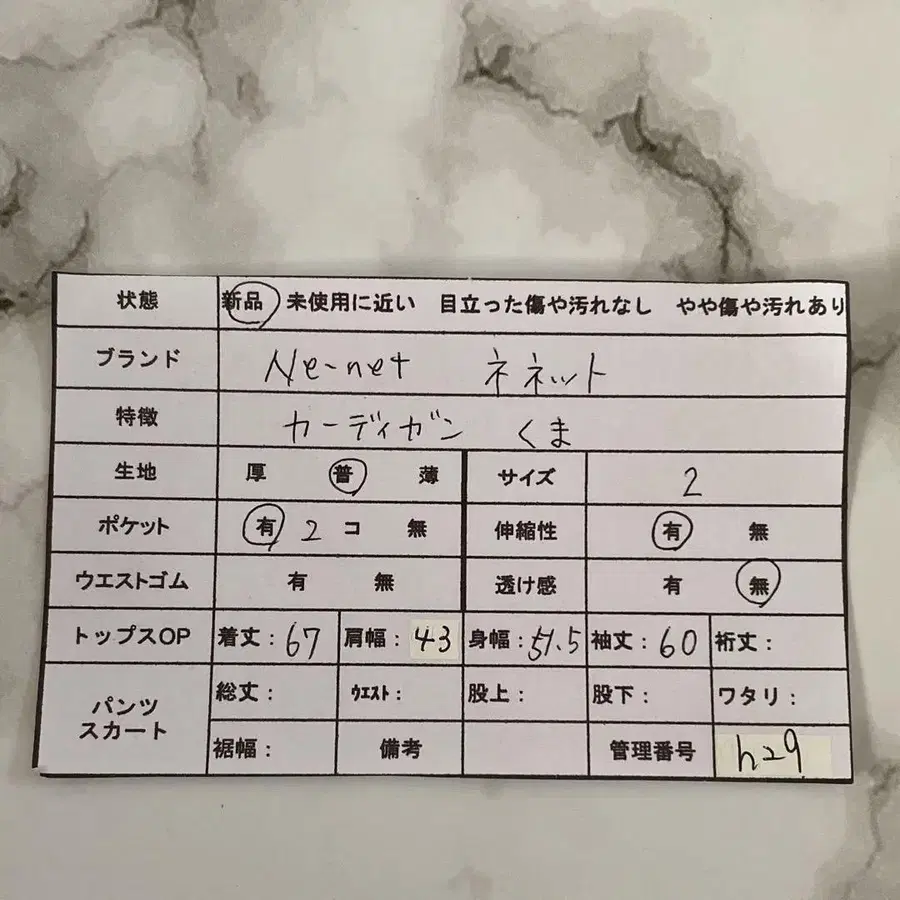 状態 新品 未使用に近い 目立った傷や汚れなし やや傷や汚れあり
ブランド Ne-net ネネット
特徴 カーディガン くま
生地 厚 普 薄 サイズ 2
ポケット 有 2 コ 無 伸縮性 有 無
ウエストゴム 有 無 透け感 有 無
トップスOP 着丈：67 肩幅：43 身幅：51.5 袖丈：60 裄丈：
パンツ スカート 総丈： ｳｴｽﾄ： 股上： 股下： ワタリ：
裾幅： 備考 管理番号 h29